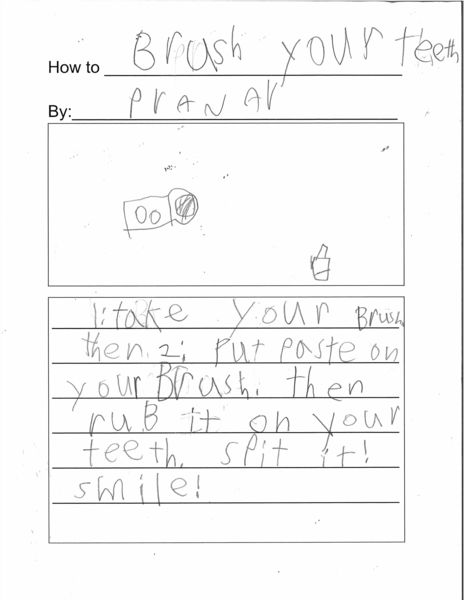 How to Brush your teeth
By: PrANAr
1: take your Brush
then 2: Put Paste on
your Brush. then
ruB it on your
teeth. spit it!
smile!